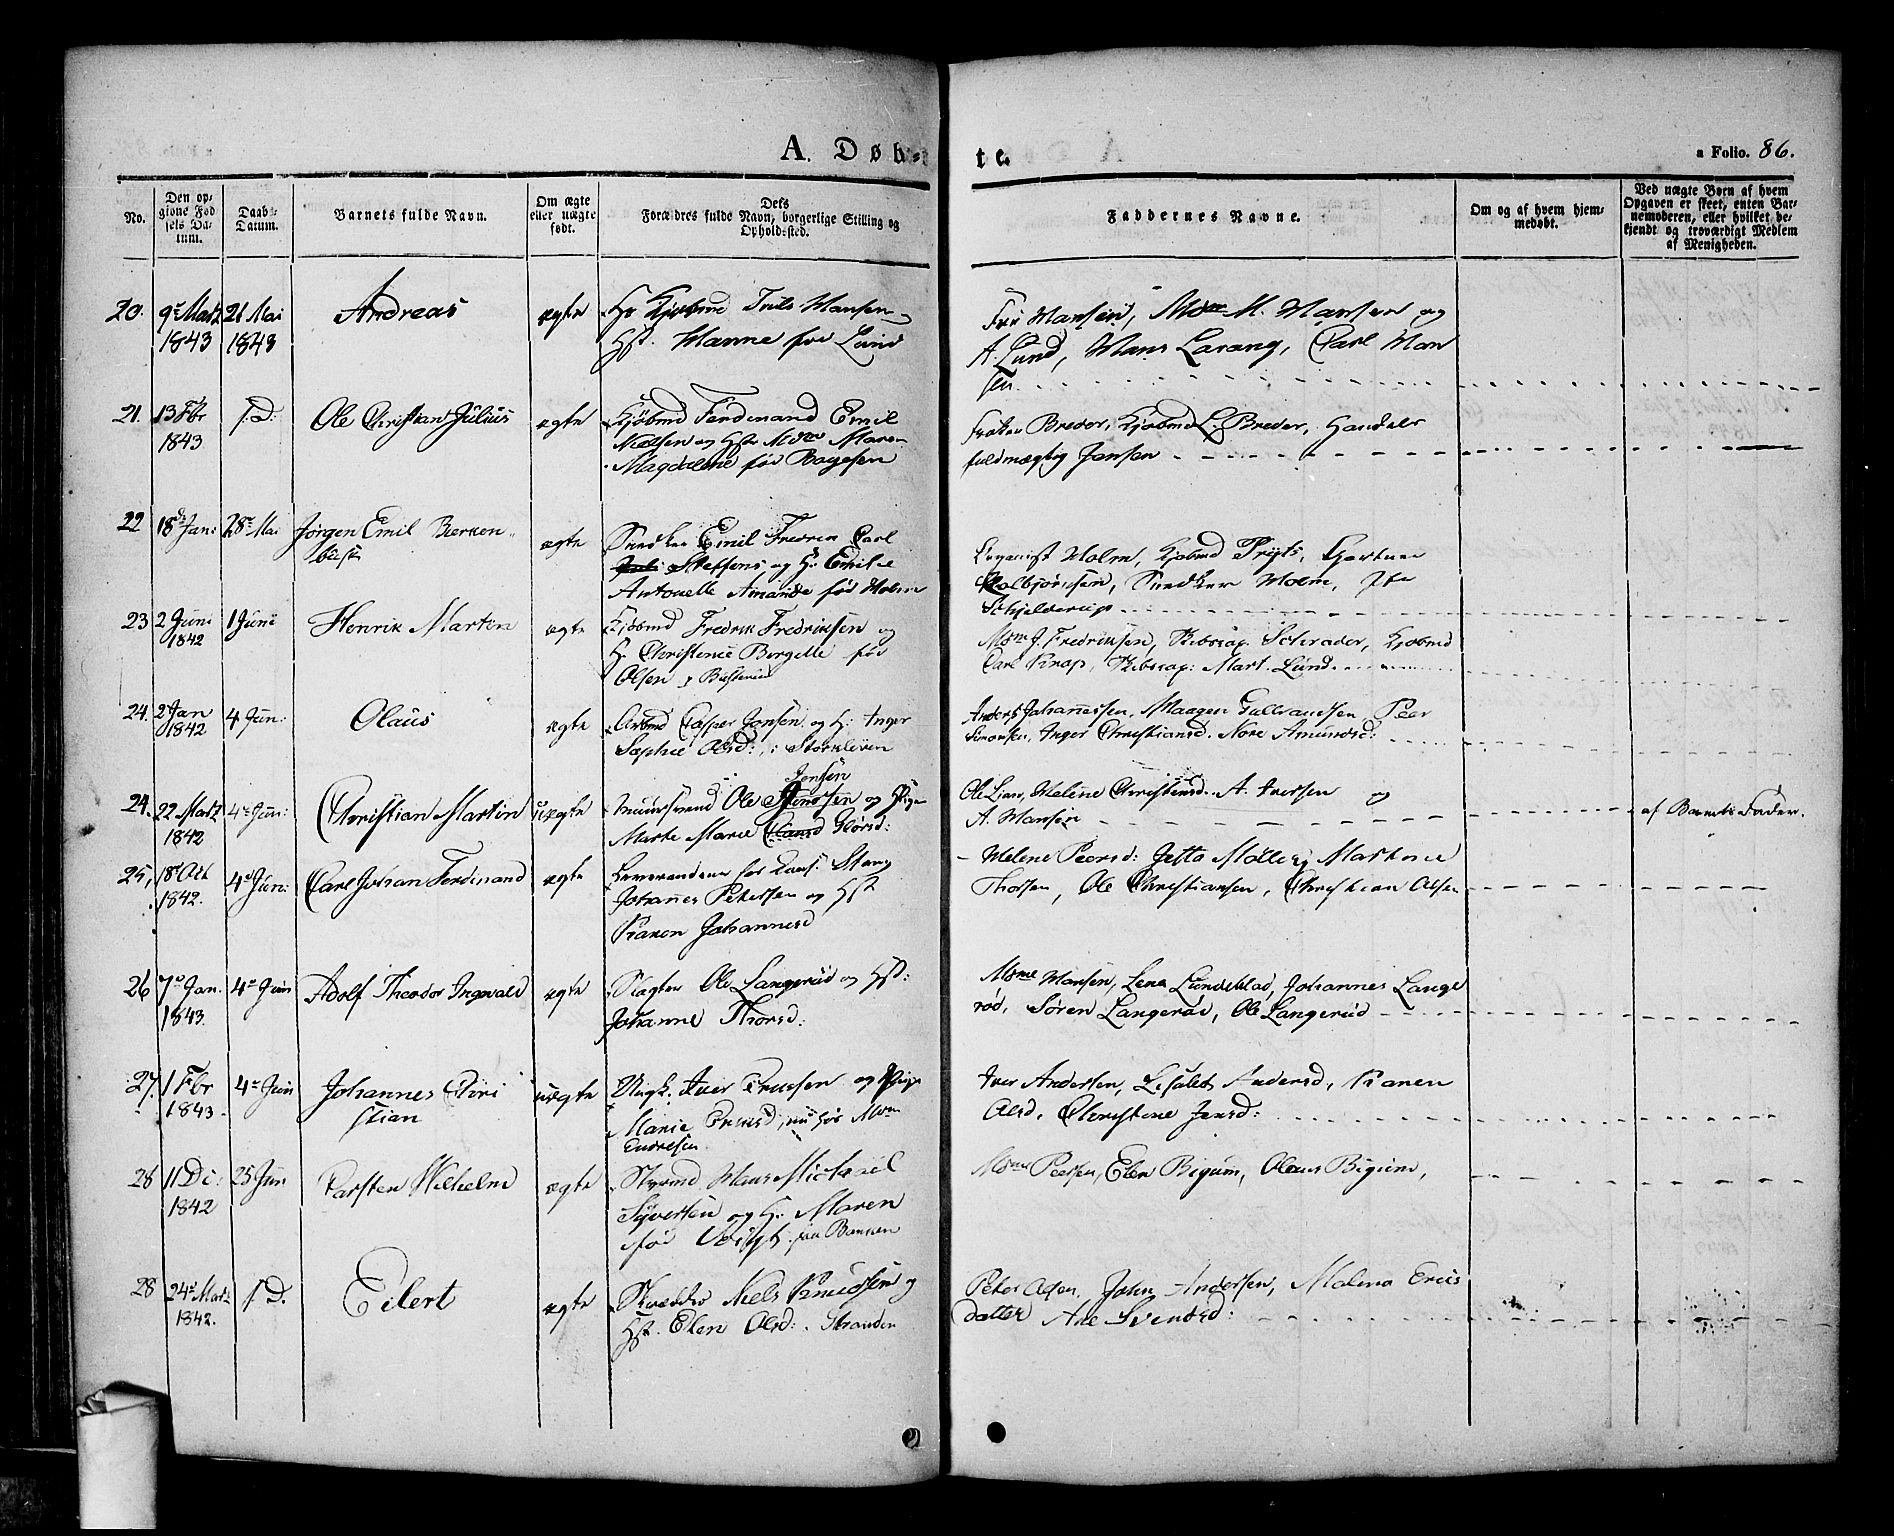 A. Døb-
te.
a Folio. 86.
No.
Den op-
givne Fød
sels Da-
tum.
Daabs-
Datum.
Barnets fulde Navn.
Om ægte
eller uægte
født.
Dets
Forældres fulde Navn, borgerlige Stilling og
Opholdssted.
Faddernes Navne.
Om og af hvem hjem-
medøbt.
Ved uægte Børn af hvem
Opgaven er skeet, enten Bar-
nemoderen, eller hvilket be-
kjendt og troværdigt Medlem
af Menigheden.
20. 9de Martz 21 Mai Andreas ægte Hr Kjøbmd Hansen
1843 1843 Hst. Hanne fød Lund
Fru Hansen, Mdme M. Hansen og
A. Lund, Hans Carl Han
sen.
21. 13 Fbr s.D: Ole Christian Julius ægte Kjøbmd Ferdinand Emil
1843 Nielsen og Hst Mdm Maren
Magdalene fød Boyesen
Frøken Breder, Kjøbmd L. Breder, Handels
fuldmægtig Jensen
22 18de Jan: 28de Mai Jørgen Emil Bierken ægte Snedker Emil Fredrik Carl
busk Steffens og H. Emilie
Antonette Amanda fød Holm
Organist Holm, Kjøbmd Gartner
Kolbjørnsen, Snedker Holm,
Schjelderup
23 2 Juni 1 Juni Henrik Martin ægte Kjøbmd Fredrik Fredriksen og
1842 H. Christine Børgette fød
Olsen
Mdm J. Fredriksen, Skibscap. Schrader, Kjøbmd
Carl Krap, Skibscap: Mart. Lund.
24. 2 Jan 4 Jun: Olaus ægte Arbmd Casper Jensen og H: Inger
1842 Sophie Olsd: i Storeleven
Anders Johannessen, Maagen Gulbrandsen Peer
Simonsen, Inger Christiansd. Amundsd:
24. 22 Martz 4de Jun: Christian Martin uægte Muursvend Ole Jensen og Pige
1842 Marte Marie Glørsd:
Ole Lian, Helene Christensd. A. Iversen og
A. Hansen
af Barnets Fader.
25, 18de Oct 4de Jun: Carl Johan Ferdinand ægte
1842. Johannes Petersen og Hst
Karen Johannesd
Helene Peersd: Jetta Møller, Mathea
Thorsen, Ole Christiansen, Christian Olsen
26 7de Jan. 4de Juni Adolf Theodor Ingvald ægte Slagter Ole Langerud og Hst:
1843. Johanne Thorsd:
Mdme Hansen, Lena Lundeblad, Johannes Lange
rød, Søren Langerød, Ole Langerud
27. 1 Fbr 4de Juni Johannes Chri uægte Ungk. Iver og Pige
1843 stian Marie nu hos Mdm
Endresen
Iver Andersen, Lisabet Andersd, Karen
Olsd, Christine Jensd:
28 11 De: 25 Jun Carsten Wilhelm ægte Styrmd Hans Michael
1842 Syversen og H: Maren
fød Voigt
Mdme Peersen, Elen Bigum, Olaus Bigum,
28 24de Martz s.D. Eilert ægte Skrædder Niels Knudsen og
1842. Hst. Elen Olsd: Stranden
Peter Olsen, John Andersen, Malena Erics
datter Ane Svendsd: